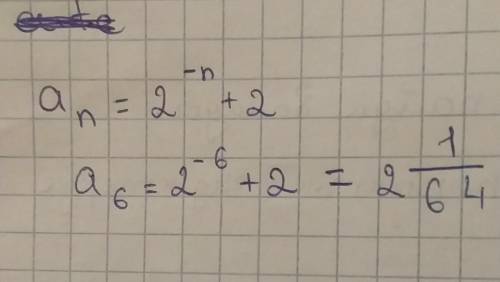 aₙ = 2⁻ⁿ + 2
a₆ = 2⁻⁶ + 2 = 2 1/64